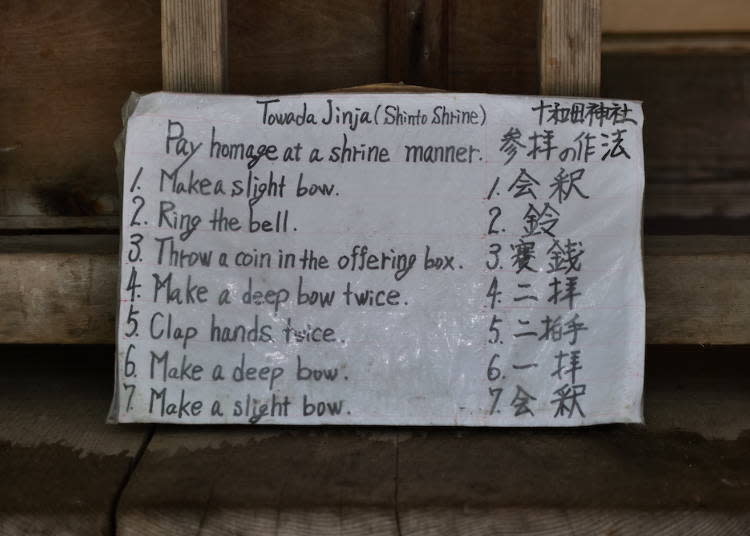 Towada Jinja (Shinto Shrine) 十和田神社
Pay homage at a shrine manner. 参拝の作法
1. Make a slight bow. 1. 会釈
2. Ring the bell. 2. 鈴
3. Throw a coin in the offering box. 3. 賽銭
4. Make a deep bow twice. 4. 二拝
5. Clap hands twice. 5. 二拍手
6. Make a deep bow. 6. 一拝
7. Make a slight bow. 7. 会釈